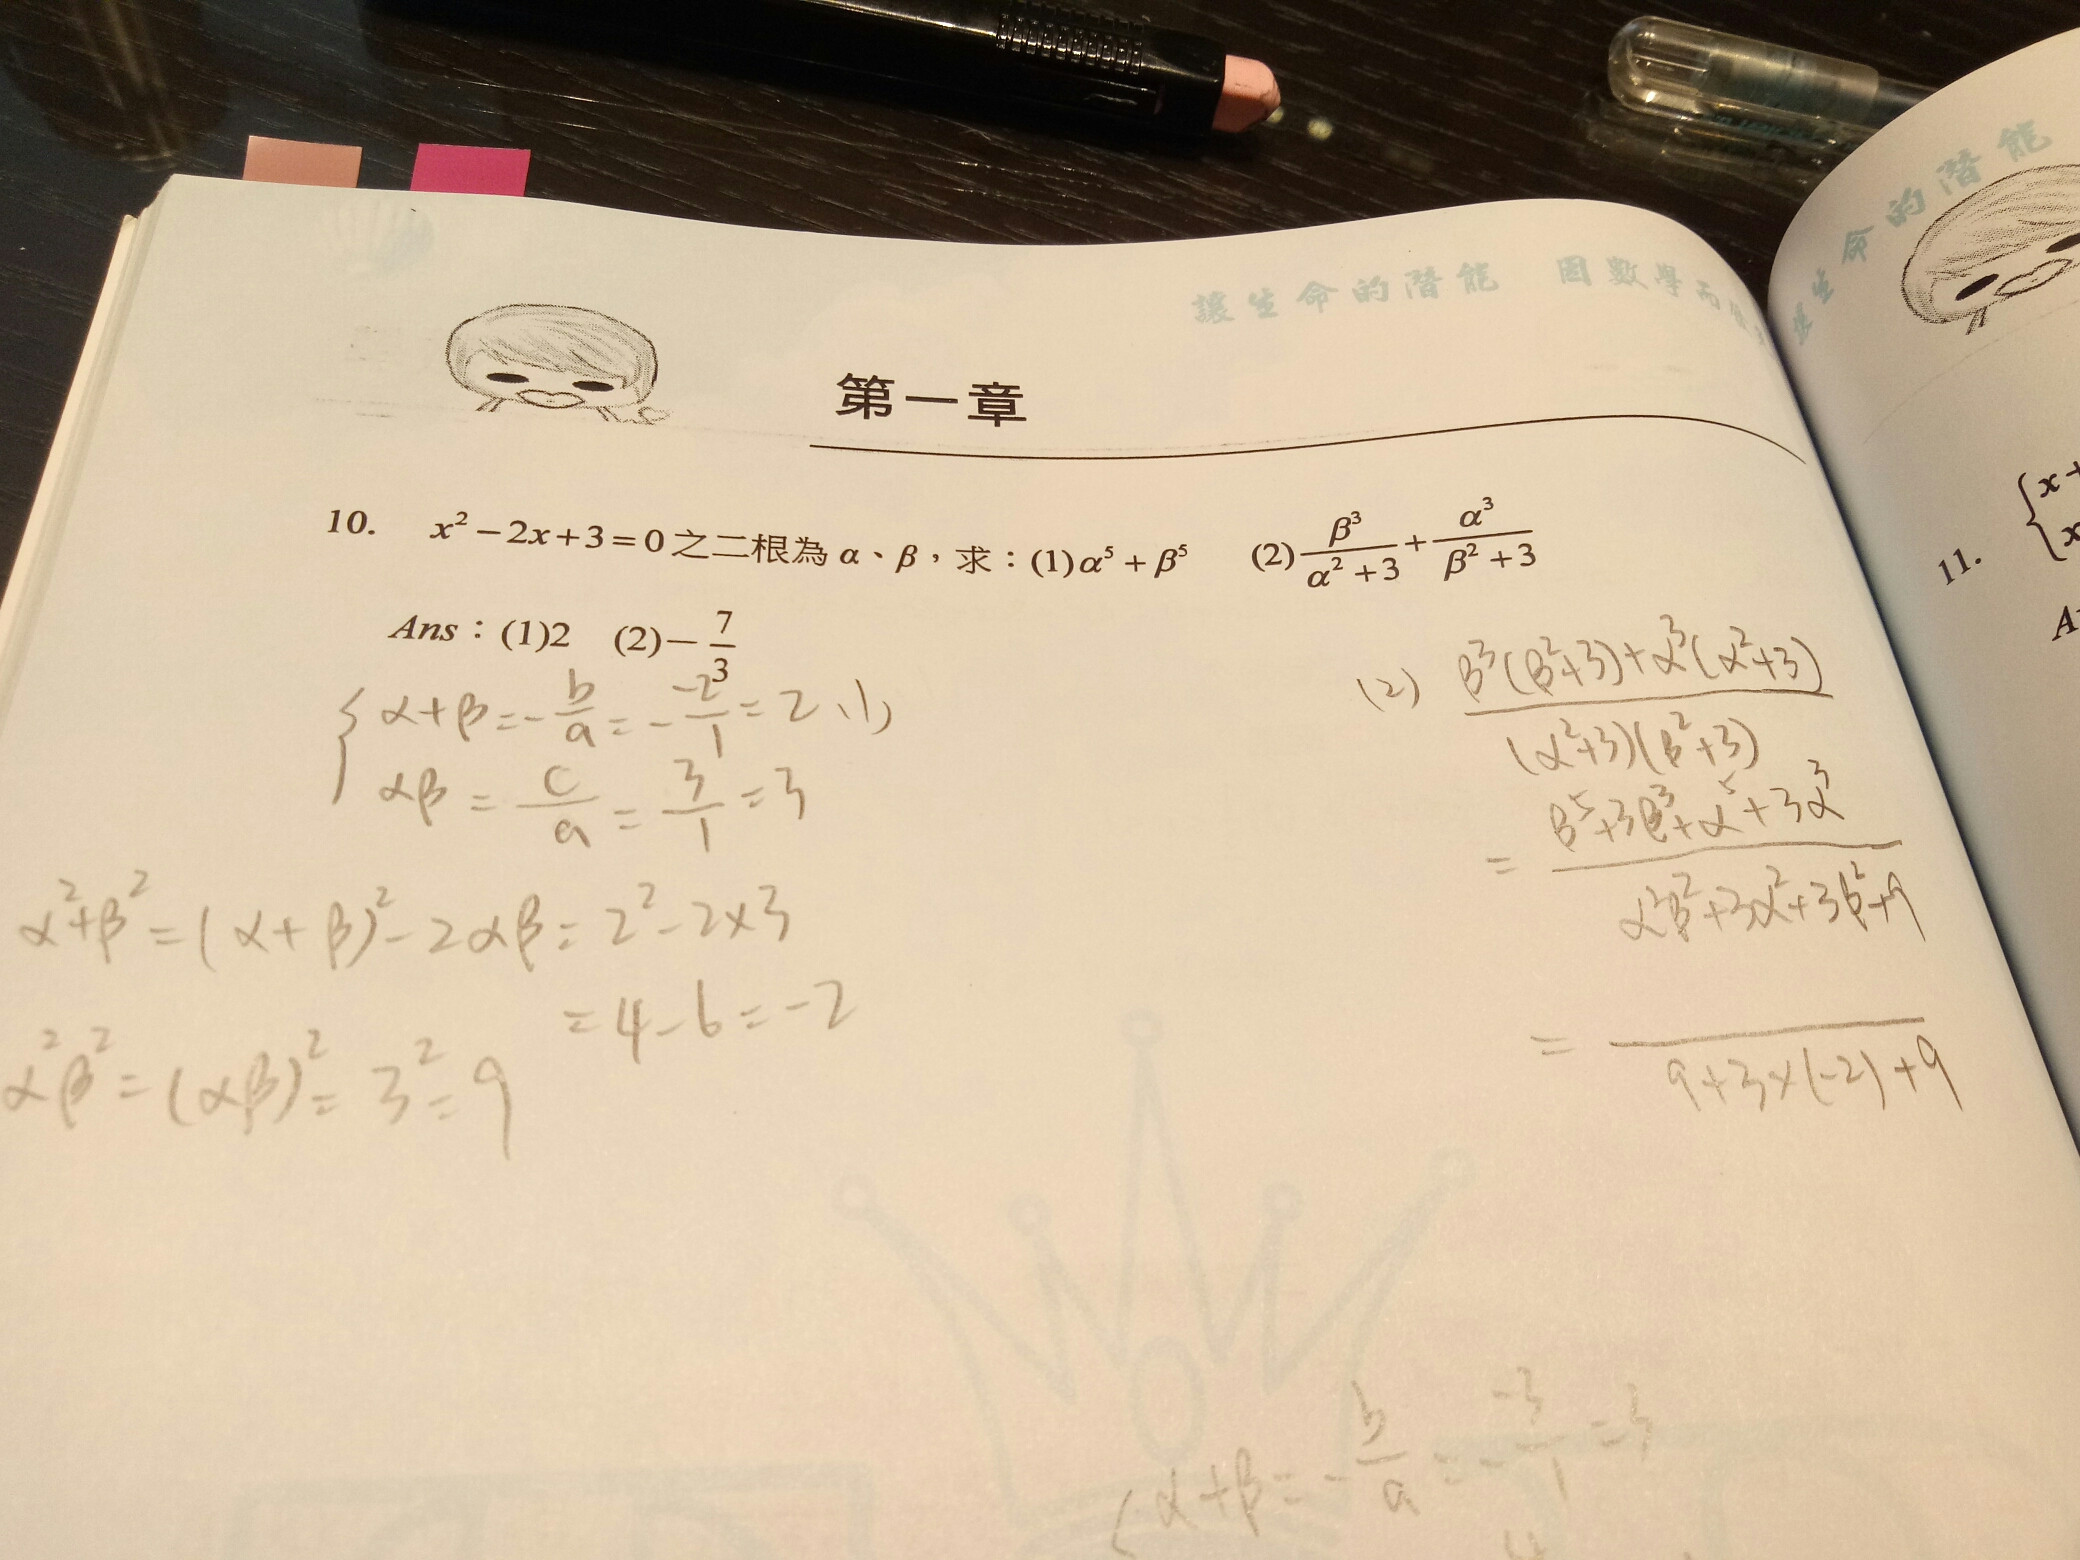 讓生命的潛能 因數學而
生命的潛能
第一章
10. x² − 2x + 3 = 0 之二根為 α、β，求：(1) α⁵ + β⁵ (2) β³/(α² + 3) + α³/(β² + 3)
Ans：(1)2 (2)− 7/3
{ α+β = - b/a = - -2/1 = 2 (1)
αβ = c/a = 3/1 = 3
α²+β² = (α+β)² - 2αβ = 2² - 2×3
= 4 - 6 = -2
α²β² = (αβ)² = 3² = 9
(2) β³(β²+3)+α³(α²+3) / (α²+3)(β²+3)
= β⁵+3β³+α⁵+3α³ / α²β²+3α²+3β²+9
= / 9+3×(-2)+9
{ α+β = - b/a = - -3/1 = 3
11. { x+
x
A